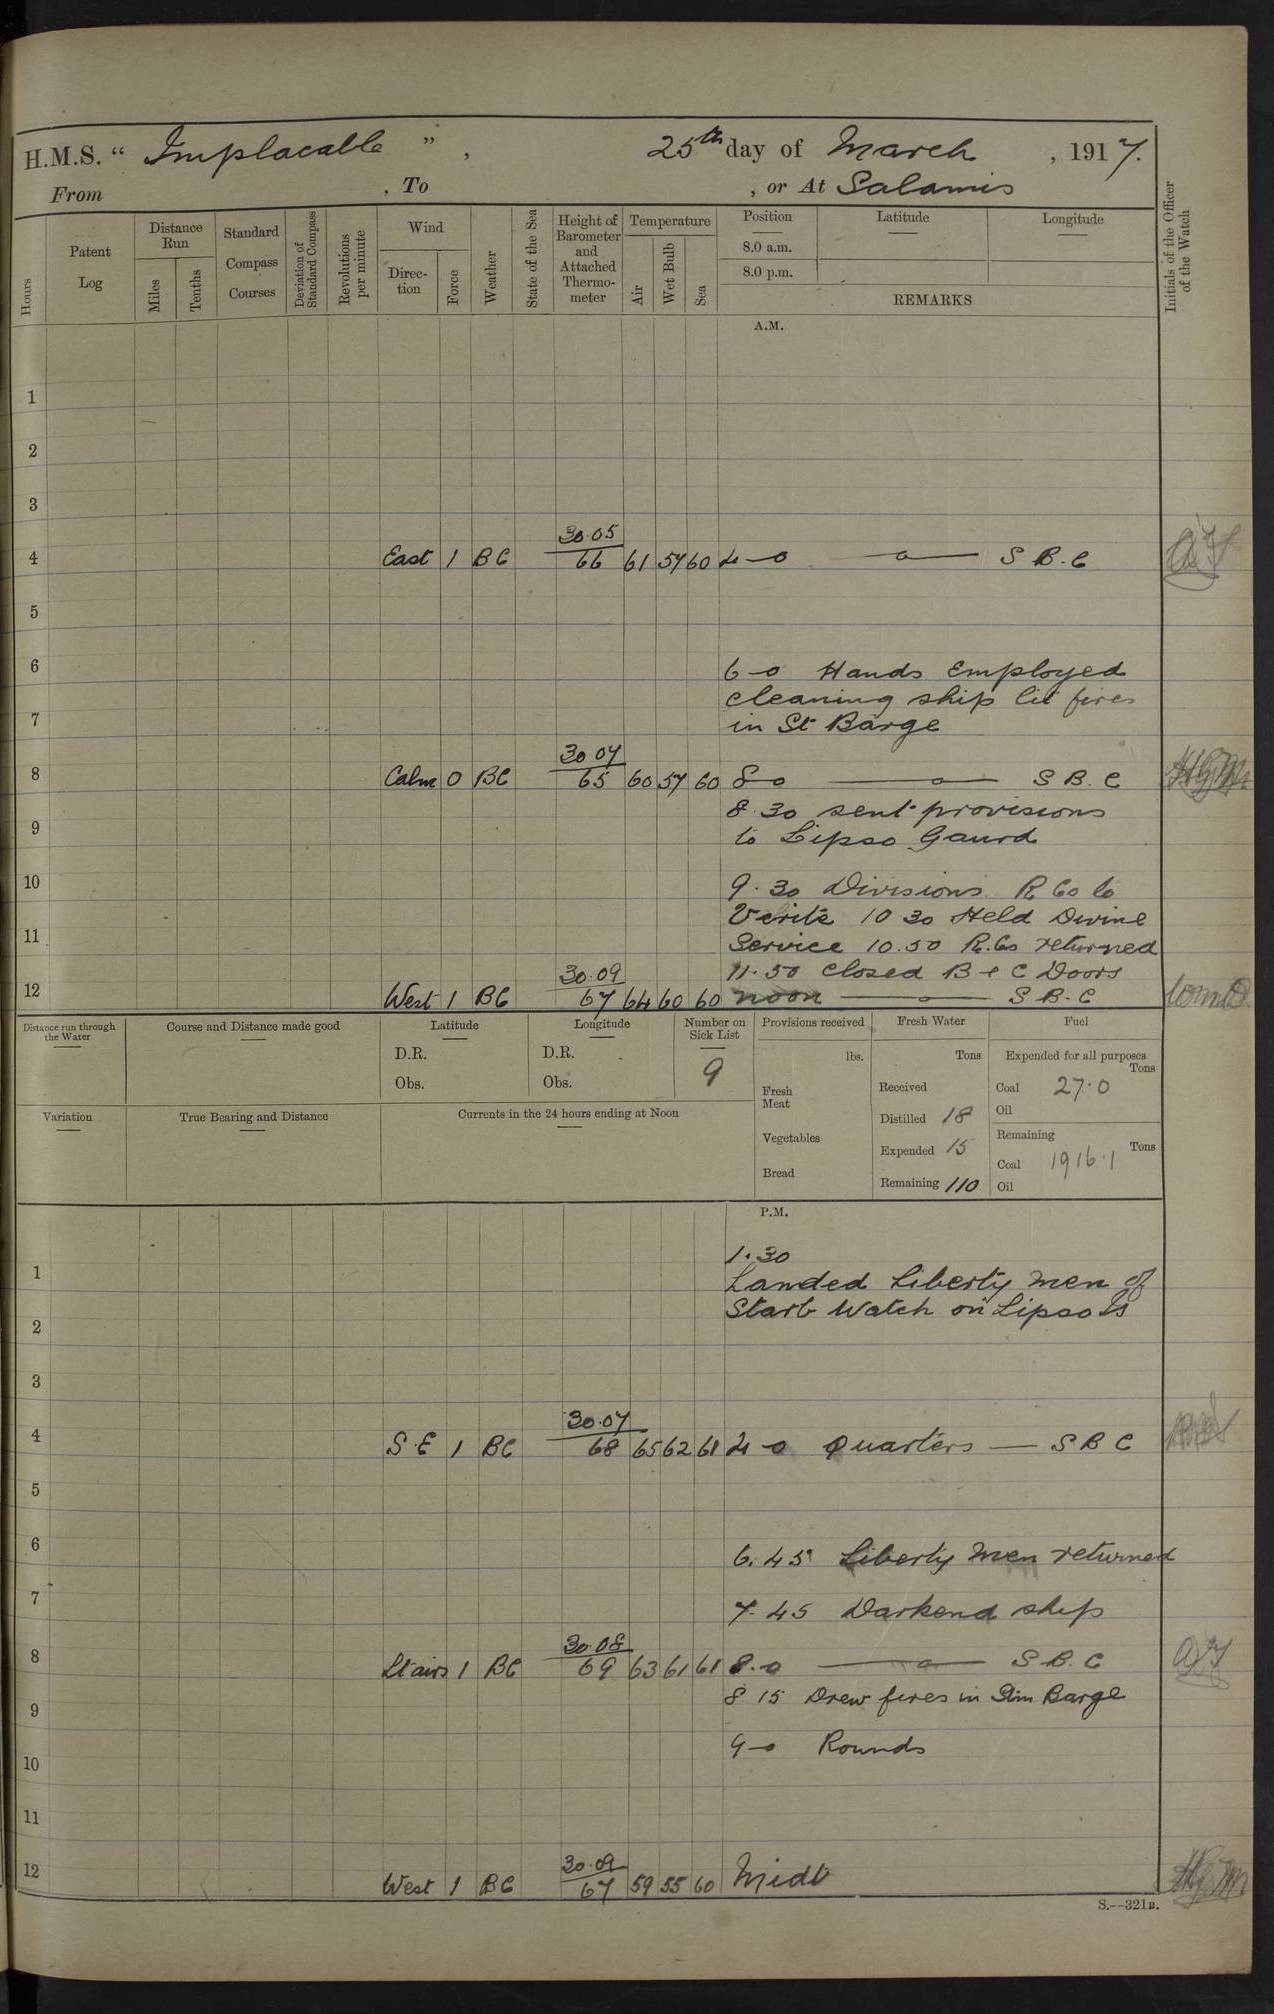 H.M.S. “ Implacable ” , 25th day of March , 1917.
From , To , or At Salamis
Hours
Patent Log
Distance Run
Miles
Tenths
Standard Compass Courses
Deviation of Standard Compass
Revolutions per minute
Wind
Direc-tion
Force
Weather
State of the Sea
Height of Barometer and Attached Thermo-meter
Temperature
Air
Wet Bulb
Sea
Position
8.0 a.m.
8.0 p.m.
Latitude
Longitude
REMARKS
Initials of the Officer of the Watch
A.M.
1
2
3
30.05
4 East 1 BC 66 61 57 60 4-0 S B.C
5
6 6-0 Hands Employed
cleaning ship lit fires
7 in St Barge
30 07
8 Calm 0 BC 65 60 57 60 8-0 S B.C
8.30 sent provisions
9 to Lipso Gaurd
10 9.30 Divisions R Cs to
Verité 10 30 Held Divine
11 Service 10.50 R.Cs returned
30.09 11.50 Closed B & C Doors
12 West 1 BC 67 64 60 60 noon S B-C
Distance run through the Water
Course and Distance made good
Latitude
D.R.
Obs.
Longitude
D.R.
Obs.
Number on Sick List
9
Provisions received
lbs.
Fresh Meat
Vegetables
Bread
Fresh Water
Tons
Received
Distilled 18
Expended 15
Remaining 110
Fuel
Expended for all purposes
Tons
Coal 27.0
Oil
Remaining
Tons
Coal 1916.1
Oil
Variation
True Bearing and Distance
Currents in the 24 hours ending at Noon
P.M.
1.30
1 Landed Liberty Men of
2 Starb Watch on Lipso Is
3
30.07
4 S.E 1 BC 68 65 62 61 4-0 Quarters — S B C
5
6 6.45 Liberty Men returned
7 7.45 Darkend ship
30.08
8 Lt airs 1 BC 69 63 61 61 8.0 S B.C
8.15 Drew fires in Stm Barge
9
9-0 Rounds
10
11
30.09
12 West 1 BC 67 59 55 60 Midt
S.—321B.